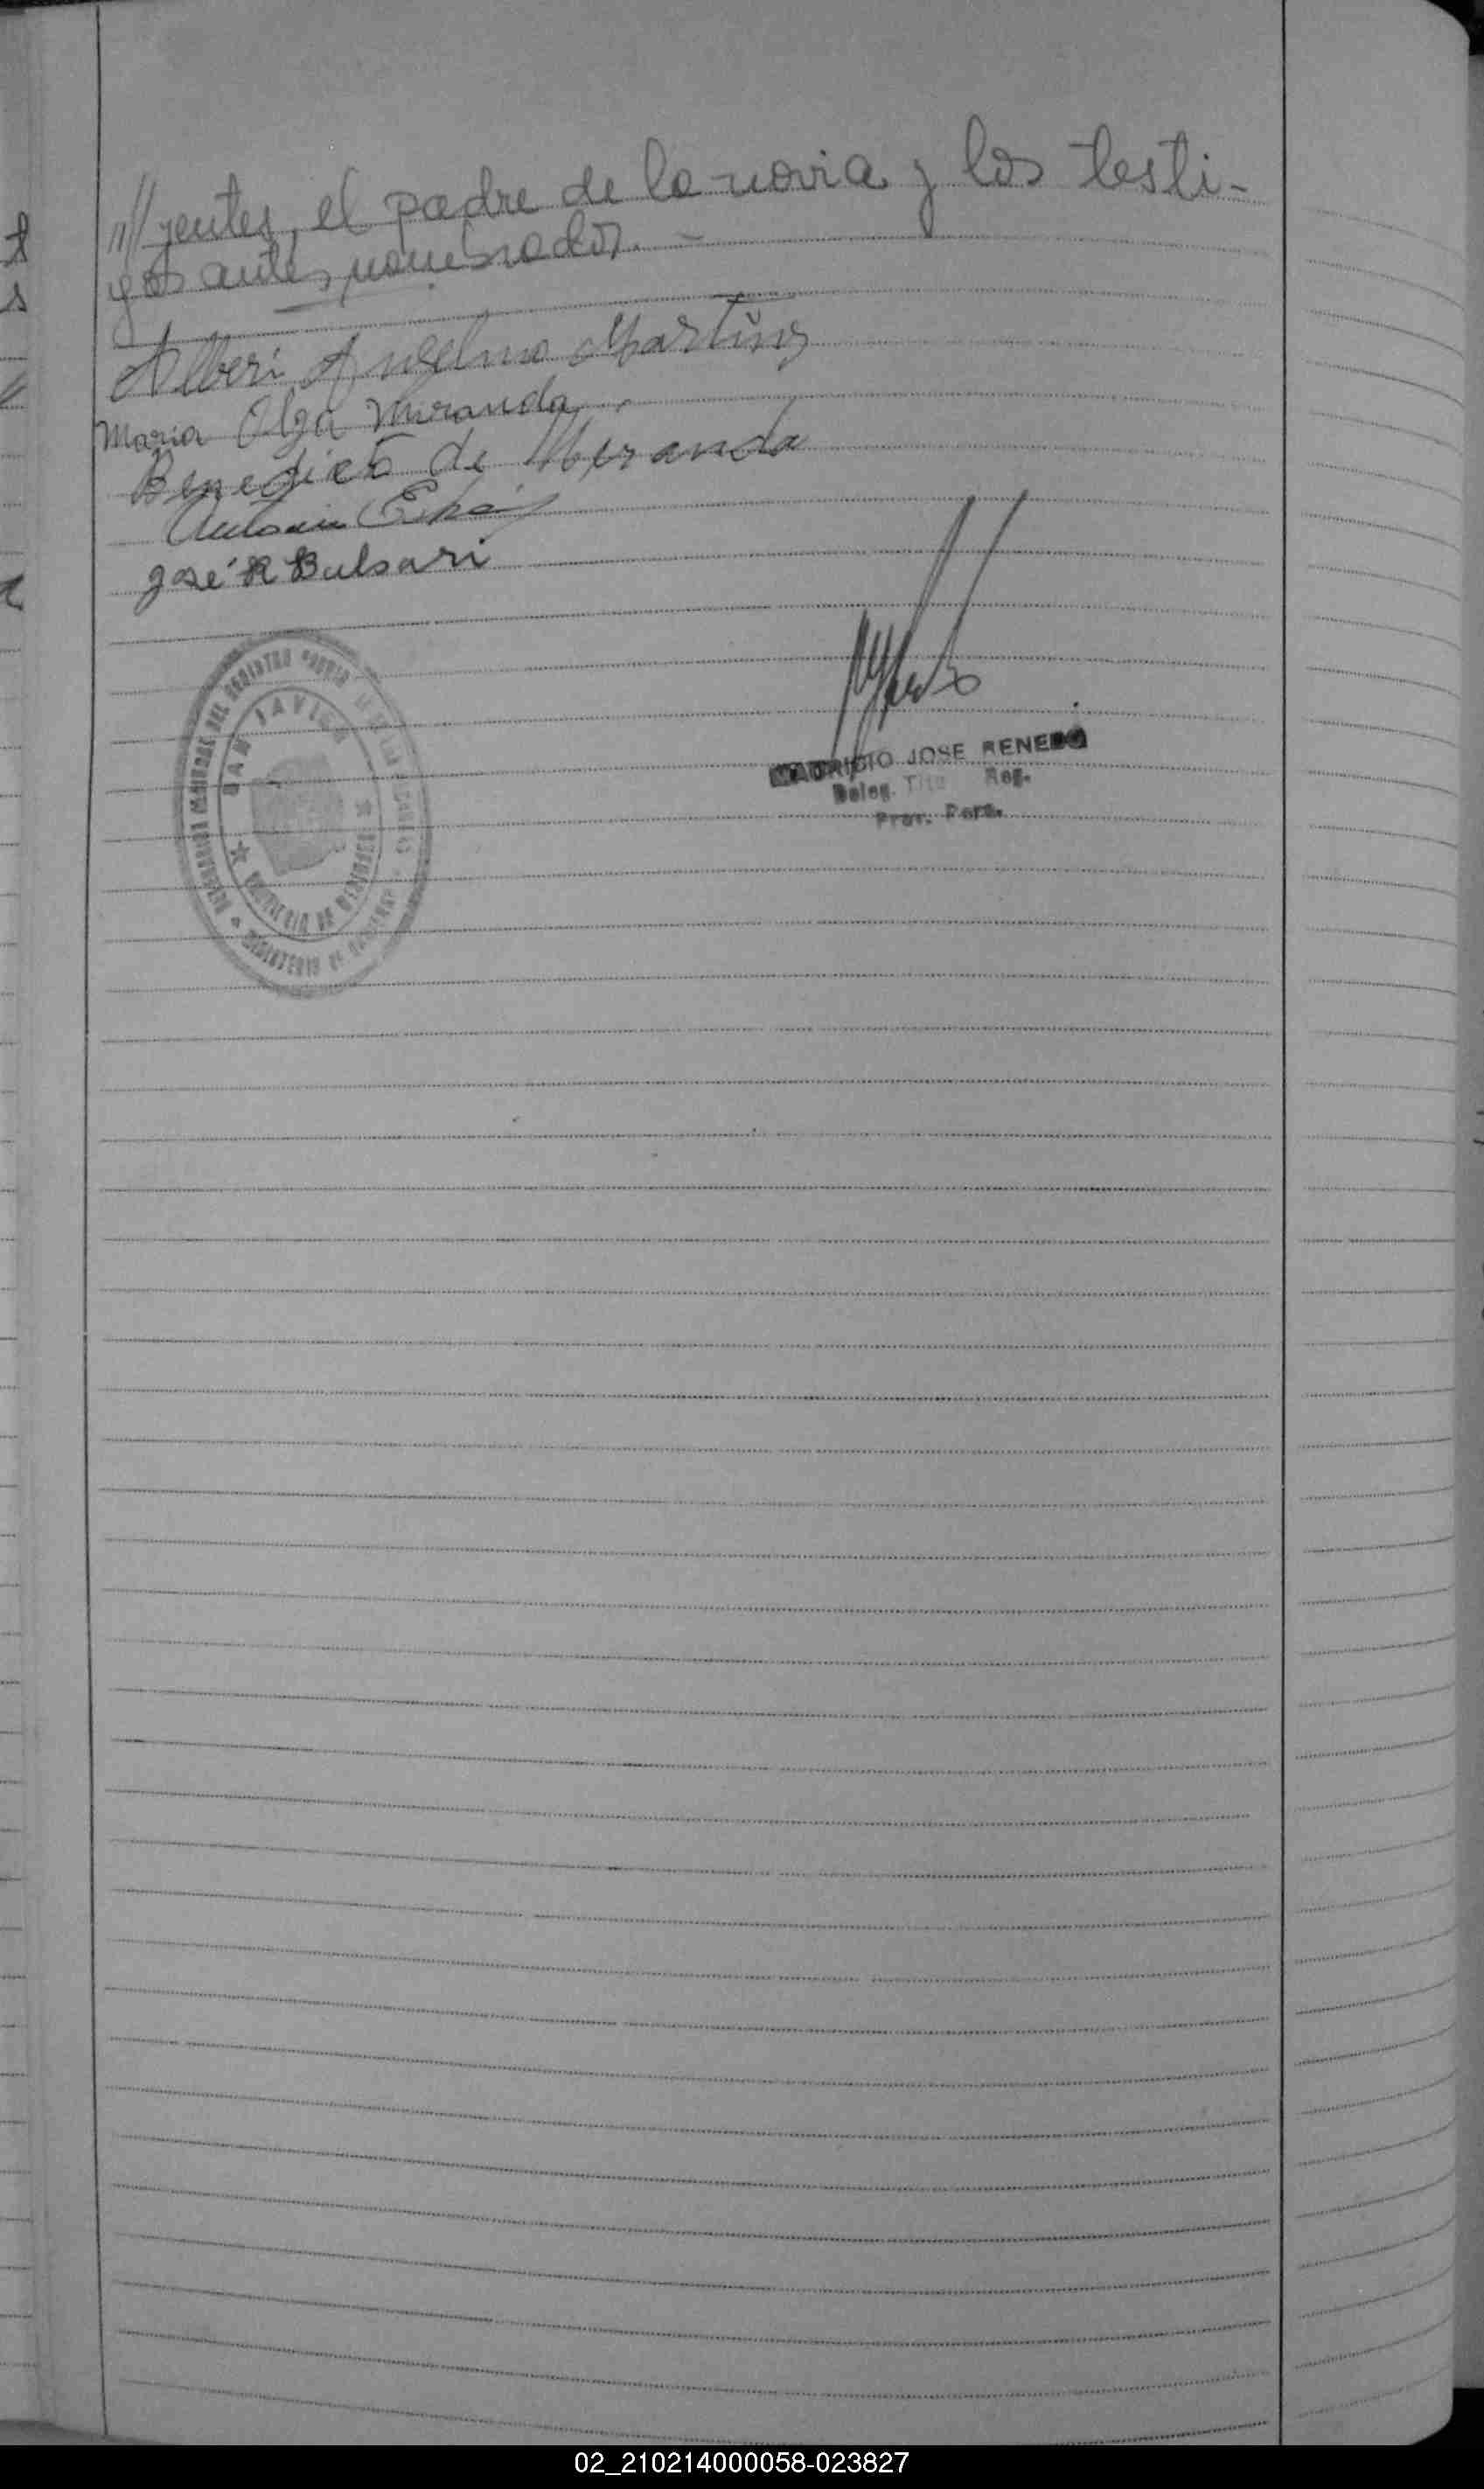 ///yentes, el padre de la novia y los testi-
gos antes nombrados. -
Alberi Anselmo Martins
Maria Olga Miranda
Benedicto de Miranda
José R Bulsari
SAN JAVIER
MAURICIO JOSE RENEDO
Deleg. Titu Reg.
Prov. Pers.
02_210214000058-023827